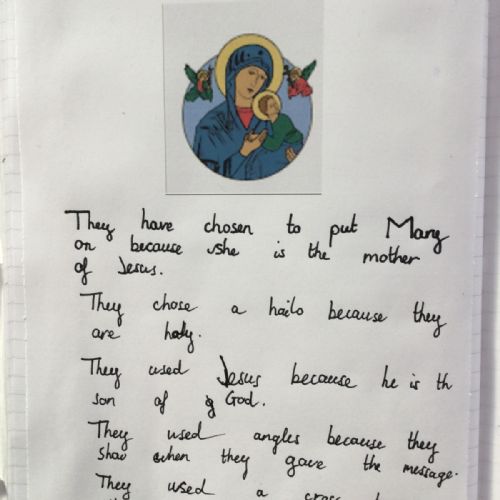 They have chosen to put Mary
on because she is the mother
of Jesus.
They chose a hailo because they
are holy.
They used Jesus because he is th
son of God.
They used angles because they
shaw when they gave the message.
They used a cross